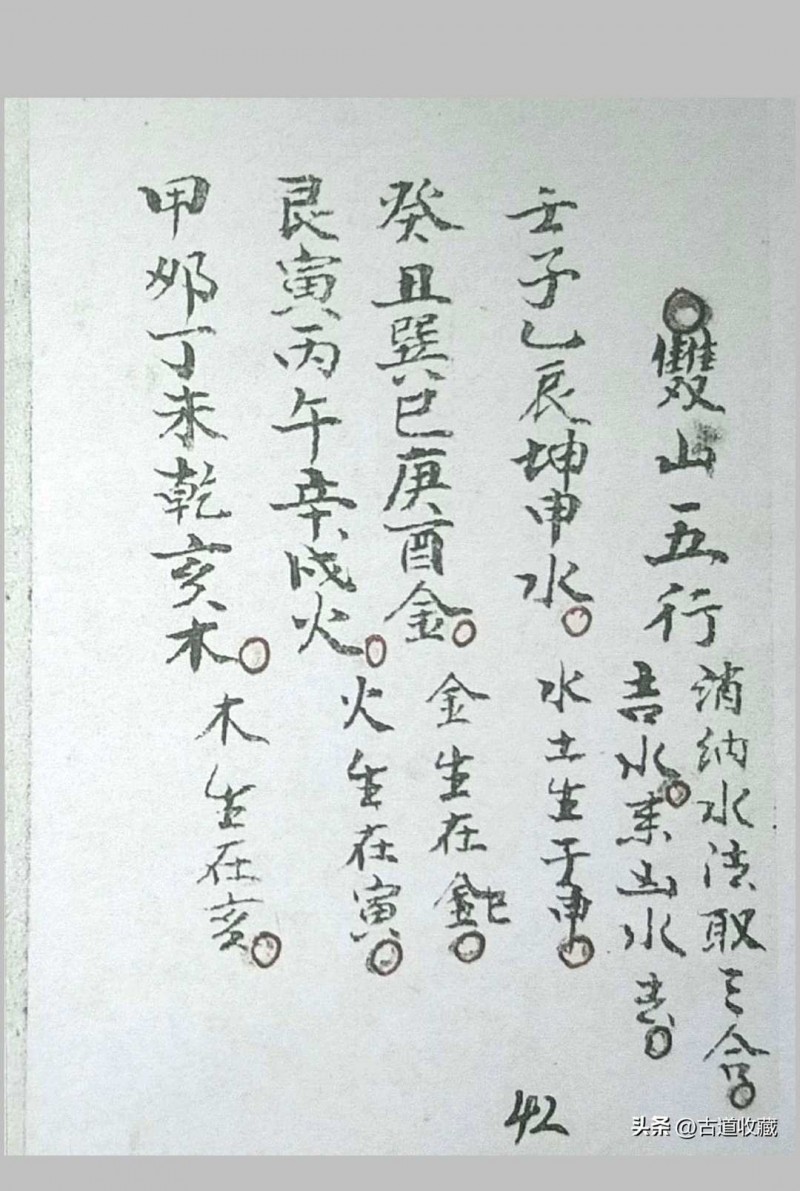 雙山五行
消納水法取三合。
吉水。来凶水去。
壬子乙辰坤申水。水土生于申。
癸丑巽巳庚酉金。金生在巳。
艮寅丙午辛戌火。火生在寅。
甲卯丁未乾亥木。木生在亥。
42
头条 @古道收藏